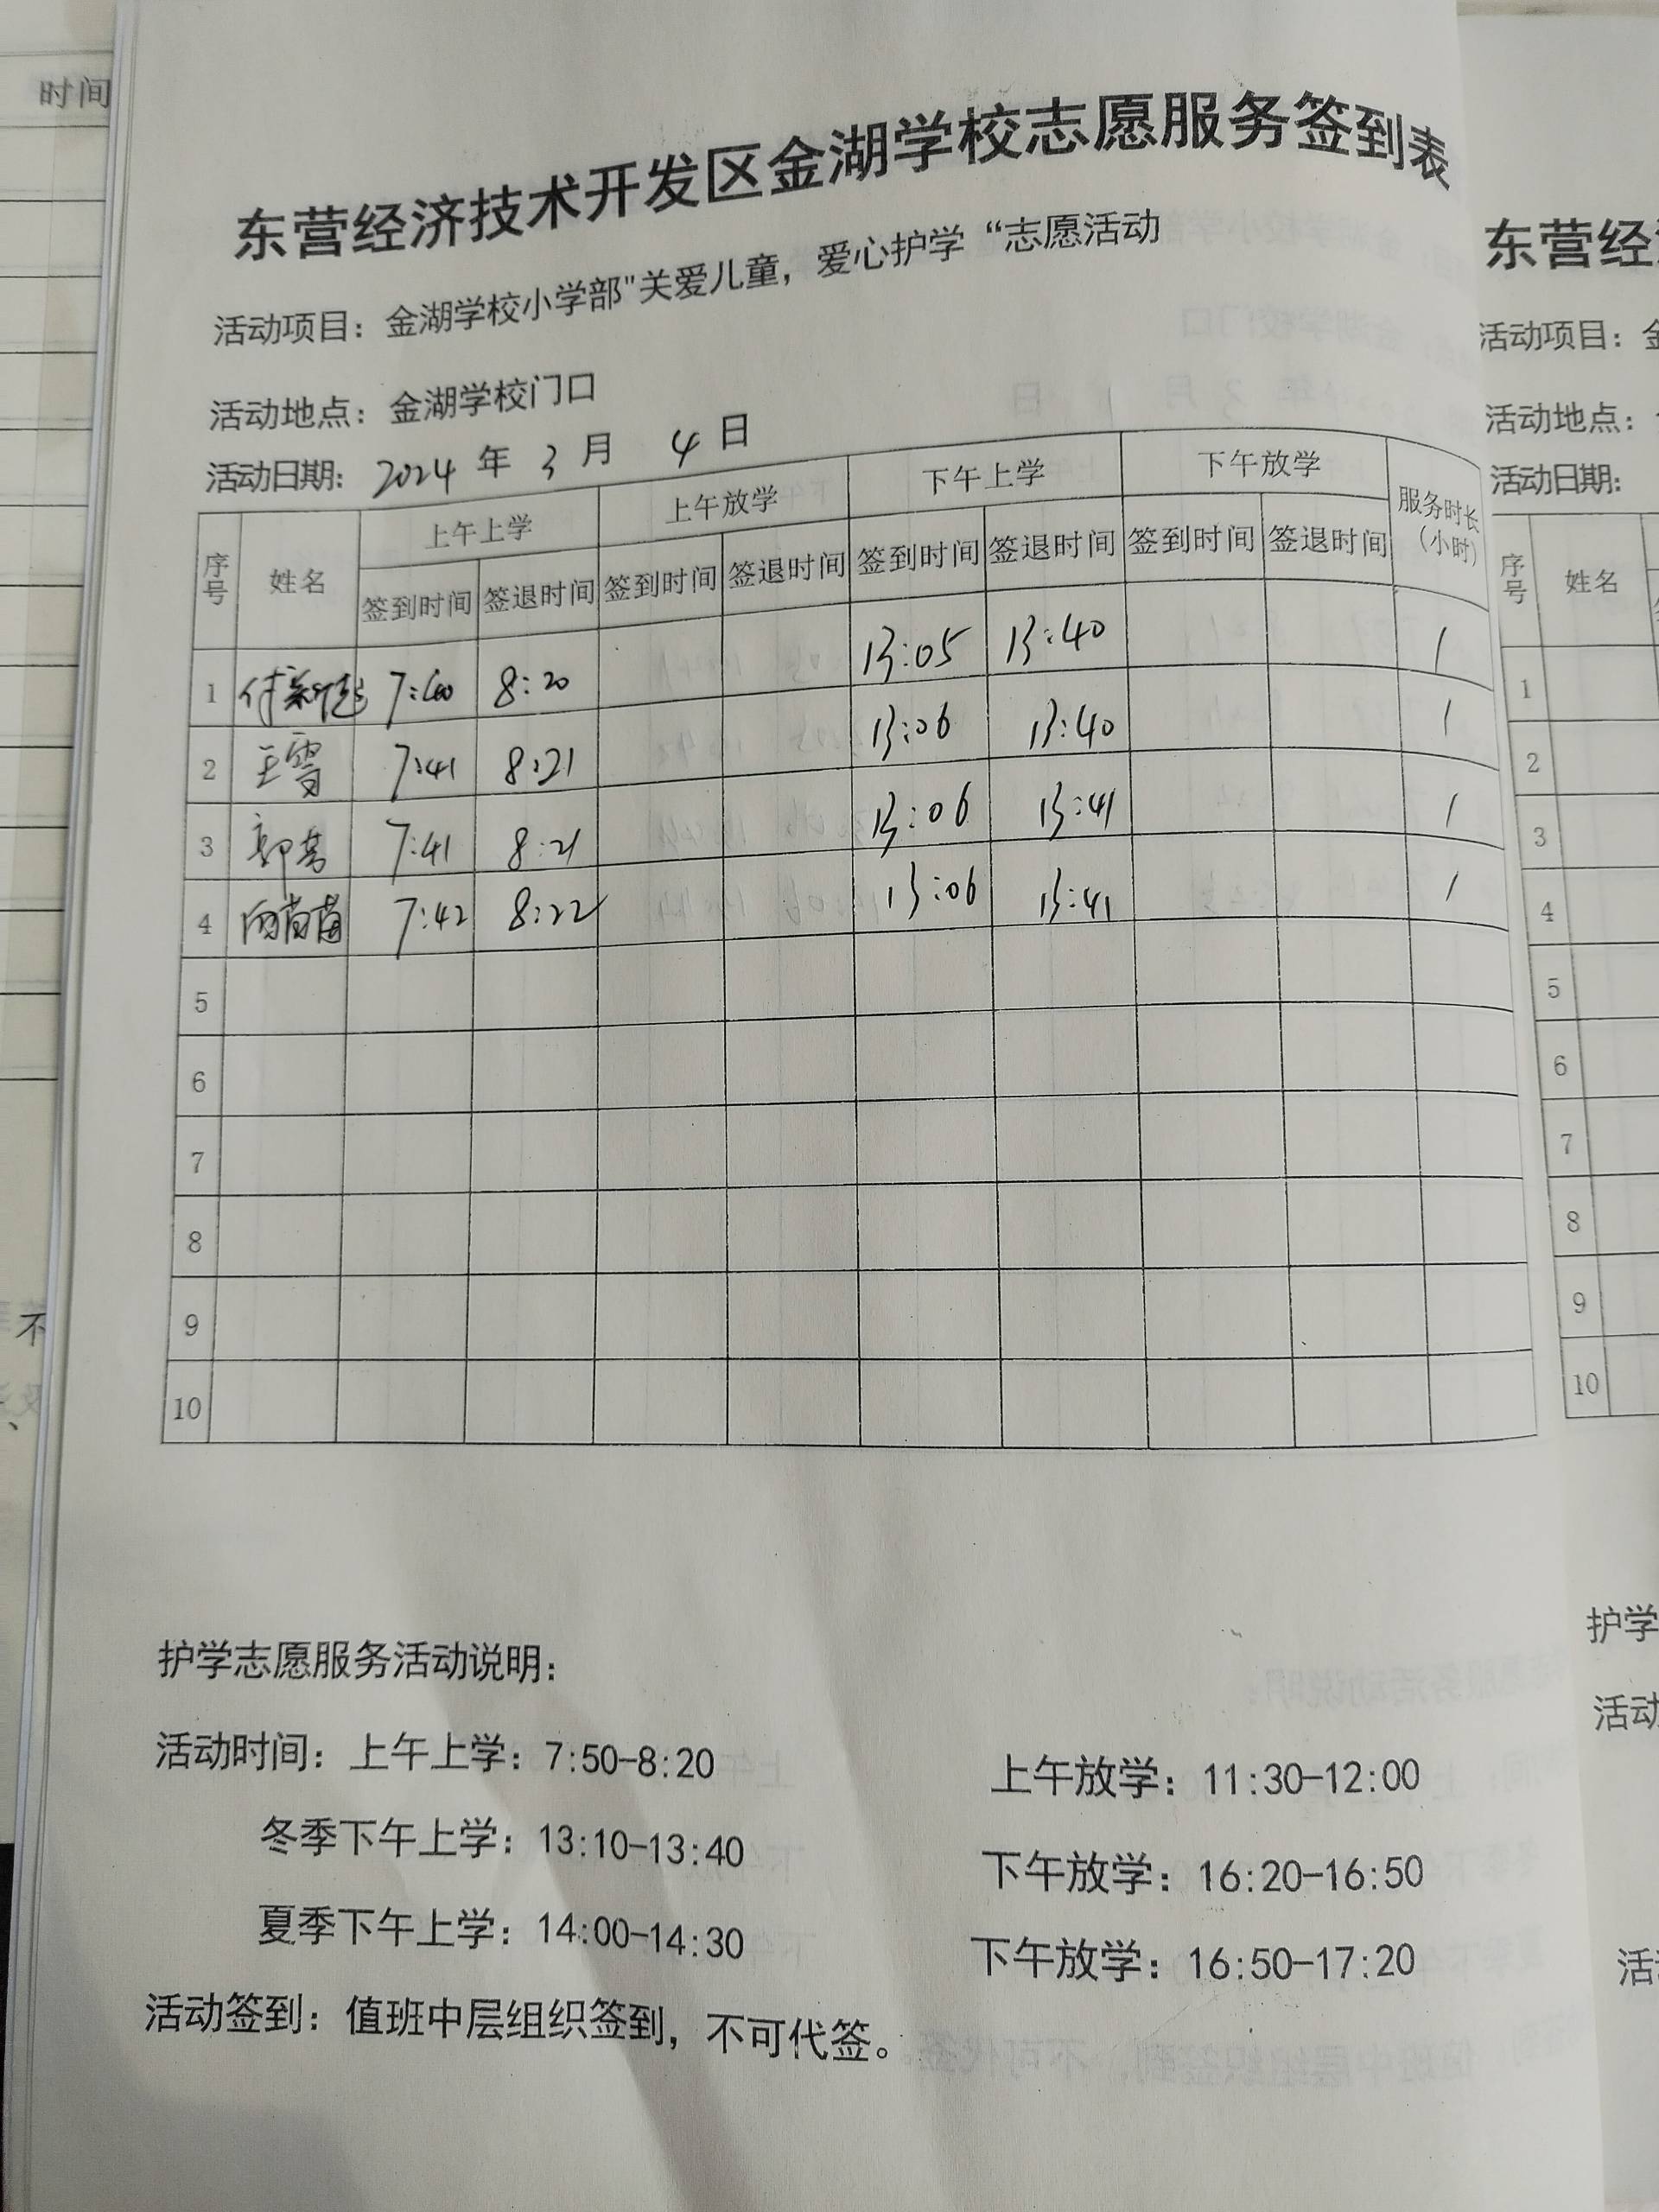 时间
东营经济技术开发区金湖学校志愿服务签到表
活动项目：金湖学校小学部"关爱儿童，爱心护学“志愿活动
活动地点：金湖学校门口
活动日期：2024年3月4日
序号 姓名 上午上学 上午放学 下午上学 下午放学 服务时长（小时）
签到时间 签退时间 签到时间 签退时间 签到时间 签退时间 签到时间 签退时间
1 7:40 8:20 13:05 13:40 1
2 王雪 7:41 8:21 13:06 13:40 1
3 郭芳 7:41 8:21 13:06 13:41 1
4 7:42 8:22 13:06 13:41 1
5
6
7
8
9
10
护学志愿服务活动说明：
活动时间：上午上学：7:50-8:20 上午放学：11:30-12:00
冬季下午上学：13:10-13:40 下午放学：16:20-16:50
夏季下午上学：14:00-14:30 下午放学：16:50-17:20
活动签到：值班中层组织签到，不可代签。
东营经
活动项目：
活动地点：
活动日期：
序号 姓名
1
2
3
4
5
6
7
8
9
10
护学
活动